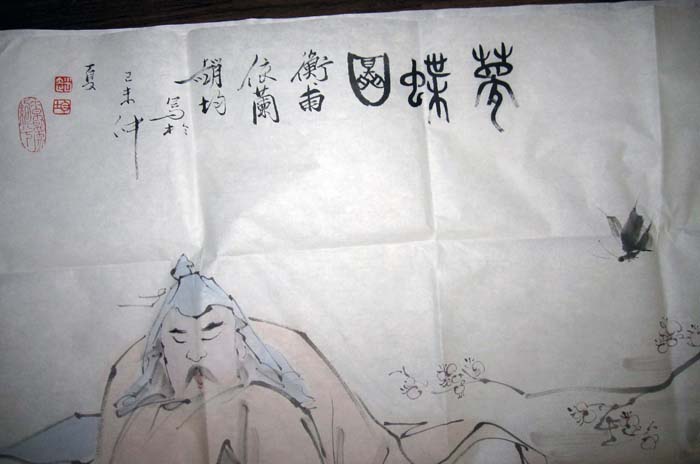 夢蝶圖
衡
依蘭
均
寫於
己未仲
夏